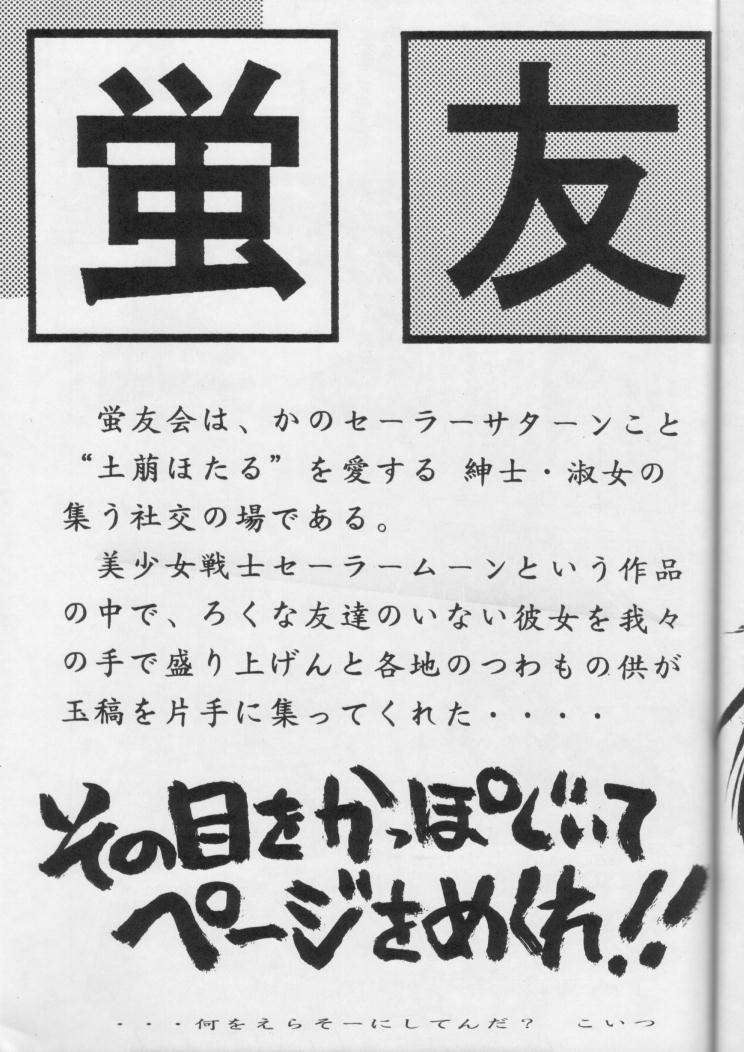 蛍友
蛍友会は、かのセーラーサターンこと
“土萠ほたる”を愛する 紳士・淑女の
集う社交の場である。
美少女戦士セーラームーンという作品
の中で、ろくな友達のいない彼女を我々
の手で盛り上げんと各地のつわもの供が
玉稿を片手に集ってくれた・・・・
その目をかっぽじいて
ページをめくれ!!
・・・何をえらそーにしてんだ？ こいつ